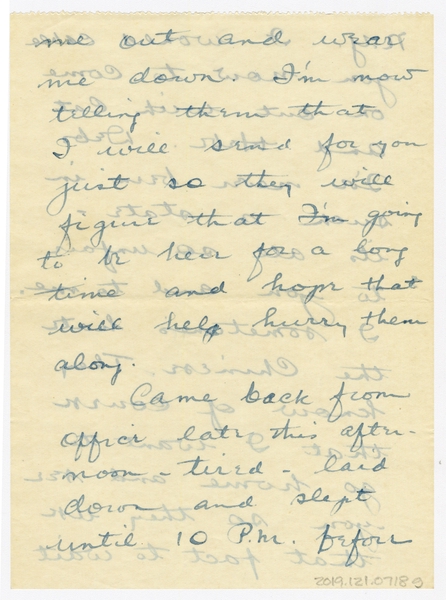 me out and wear
me down. I'm now
telling them that
I will send for you
just so they will
figure that I'm going
to be hear for a long
time and hope that
will help hurry them
along.
Came back from
office late this after-
noon - tired - laid
down and slept
until 10 P.M. before
2019.121.0718g